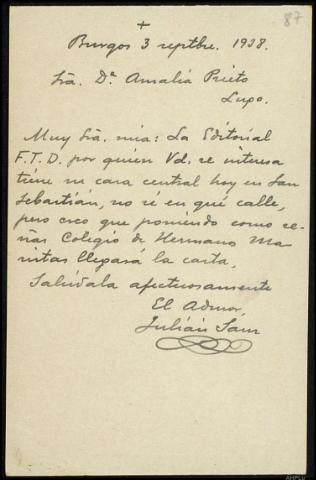 87
+
Burgos 3 septbre. 1938.
Sra. Dª Amalia Prieto
Lugo.
Muy Sra. mia: La Editorial
F.T.D. por quien Vd. se interesa
tiene su casa central hoy en San
Sebastián, no sé en qué calle,
pero creo que poniendo como se-
ñas Colegio de Hermanos Ma-
ristas llegará la carta,
Salúdala afectuosamente
El Admor,
Julián
AHPLU